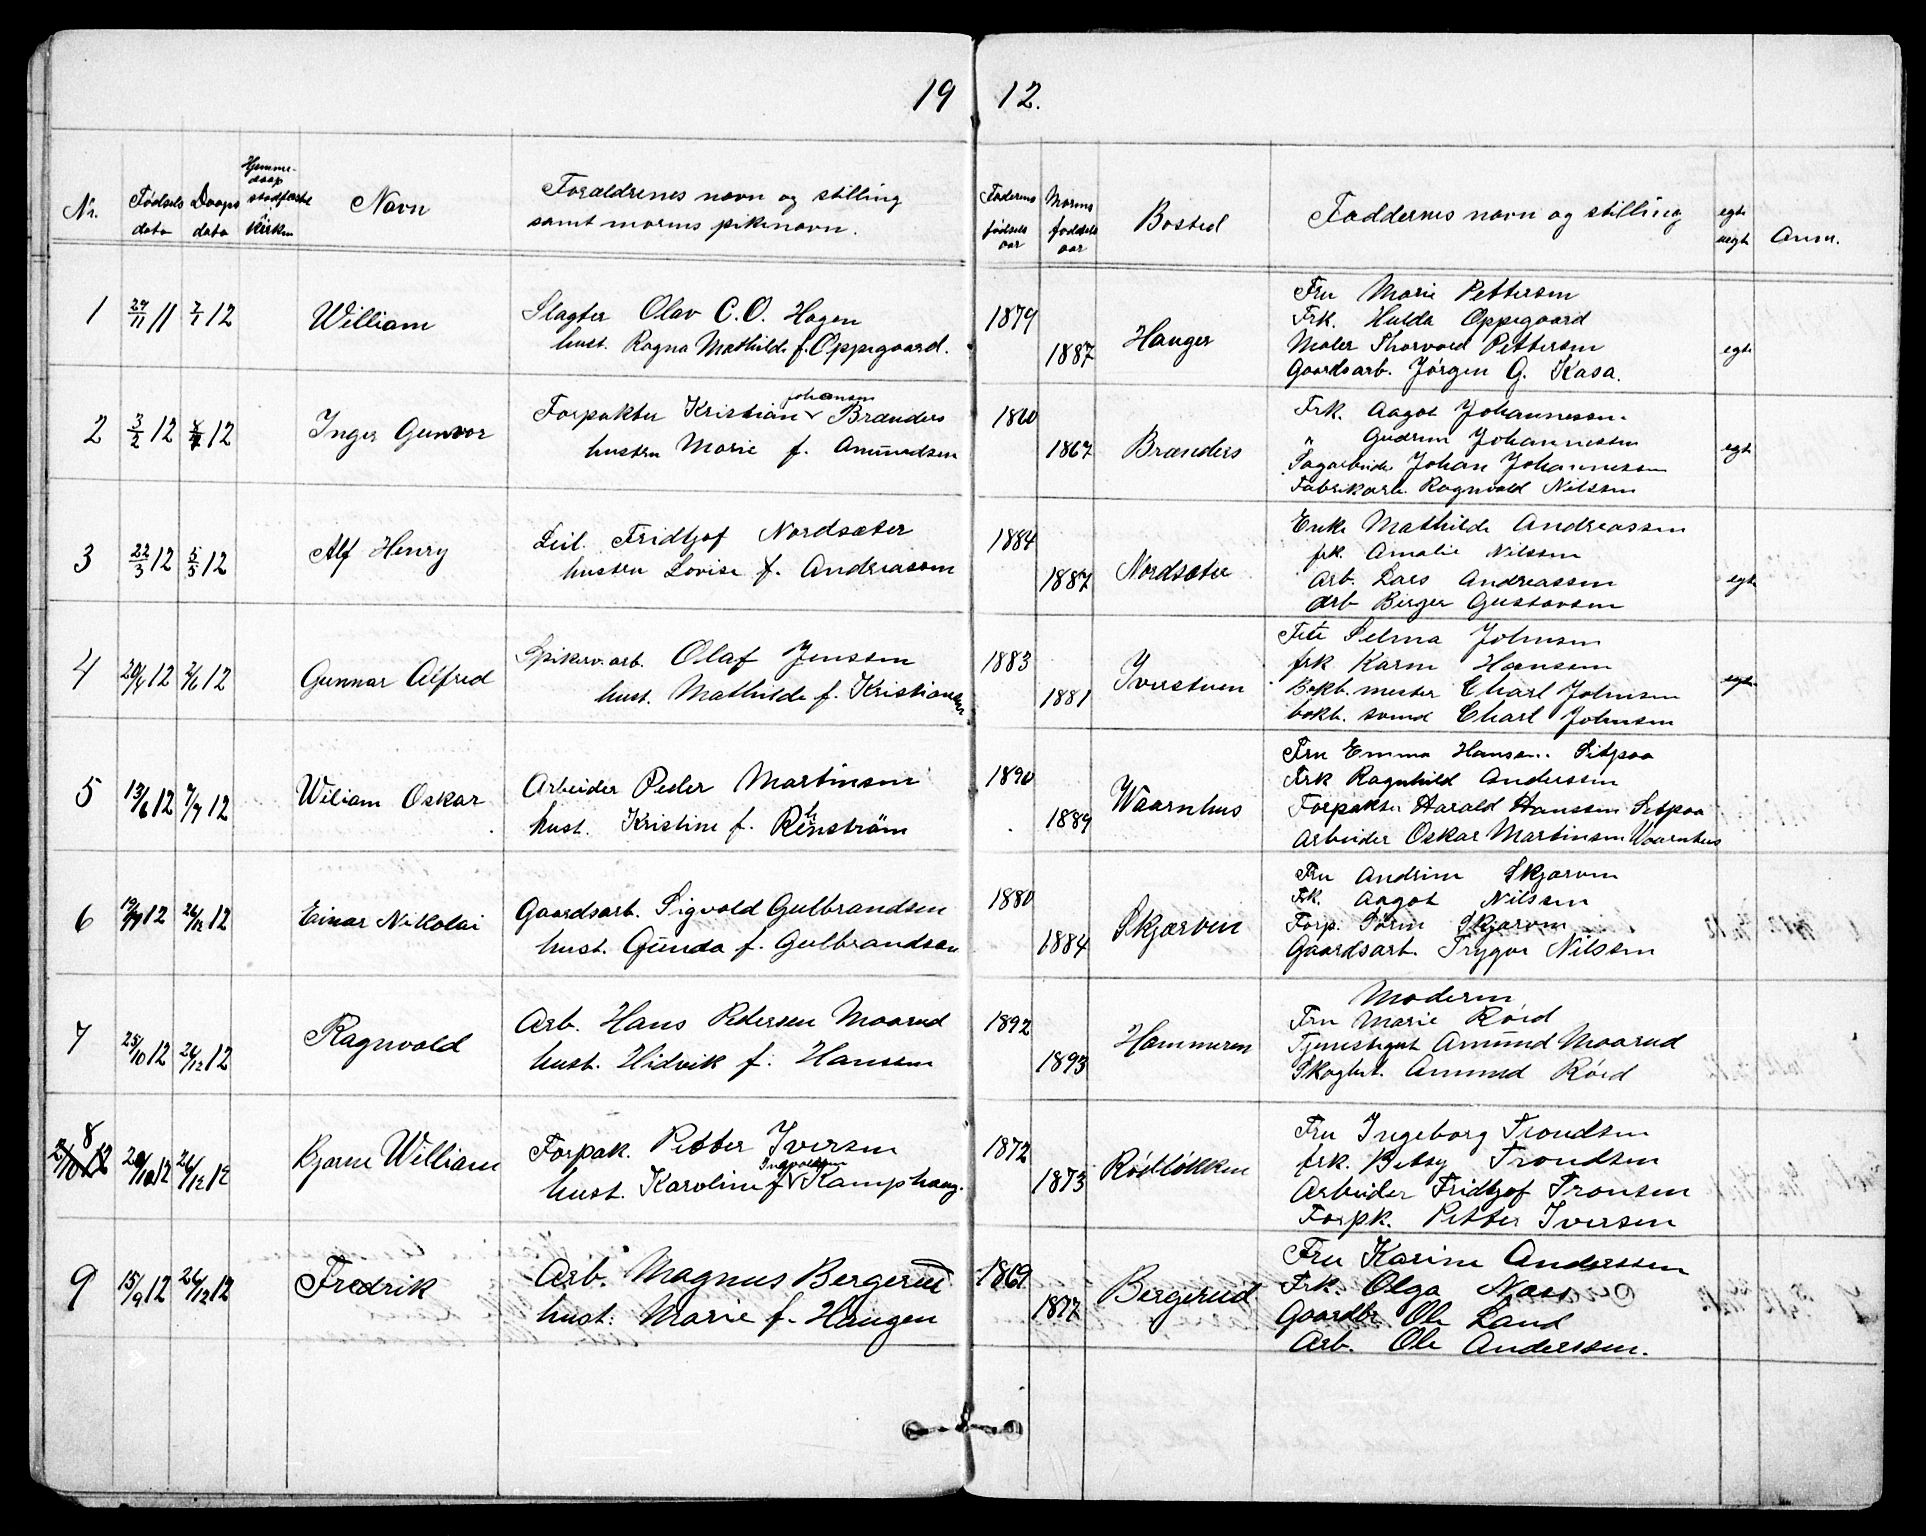 19 12.
Nr. Fødsels dato Daaps dato Hjemmedaap stadfæstet Kirken Navn Forældrenes navn og stilling samt morens pikenavn. Faderens fødsels aar Morens fødsels aar Bosted Faddernes navn og stilling egte uegte Anm.
1 29/11 11 7/1 12 William Slagter Olav C.O. Hagen 1879 Hauger Fru Marie Pettersen
hust. Ragna Mathilde f. Oppegaard. 1887 Frk. Hulda Oppegaard egte
Maler Thorvald Pettersen
Gaardsarb. Jörgen G. Kasa.
2 3/2 12 12 Inger Gunvor Forpakter Kristian Johansen Brænders 1860 Brænders Frk. Aagot Johannessen.
hustru Marie f. Amundsen 1867 " Gudrun Johannessen egte
Sagarbeider Johan Johannessen
Fabrikarb. Ragnvald Nilssen
3 22/3 12 5/5 12 Alf Henry Leil. Fridtjof Nordsæter 1884 Nordsæter Enke Mathilde Andreassen
hustru Lovise f. Andreassen 1887 frk. Amalie Nilssen egte
Arb. Lars Andreassen
Arb Birger Gustavsen
4 20/4 12 2/6 12 Gunnar Alfred Spikerv.arb. Olaf Jenssen 1883 Iverstuen Selma Johnsen
hust. Mathilde f. Kristiansen 1881 frk. Karen Hansen egte
Bokb. mester Charl Johnsen
bokb. svend Charl Johnsen
5 13/6 12 7/7 12 Wiliam Oskar Arbeider Peder Martinsen 1890 Waarnhus Fru Emma Hansen. Sitpaa
hust. Kristine f. Rehnström 1889 Frk Ragnhild Anderssen
Forpakter Harald Hanssen Sitpaa
Arbeider Oskar Martinsen Waarnhus
6 12 26/12 12 Einar Nikolai Gaardsarb. Sigvald Gulbrandsen 1880 Skjærven Fru Andrine Skjærven
hust. Gunda f. Gulbrandsen 1884 Frk. Aagot Nilssen
Forp. Sören Skjærven
Gaardsarb. Trygve Nilssen
7 25/10 12 26/12 12 Ragnvald Arb. Hans Pedersen Maarud 1892 Hammeren Moderen
hust. Hidvik f. Hanssen 1893 Fru Marie Röid
Tjenestegut Amund Maarud
Skogbet. Amund Röid
8 12 26/12 12 Bjarne William Forpak. Petter Iversen 1872 Rödlökken Fru Ingeborg Trondsen
hust. Karoline f. Ingvoldsen Kamphaug. 1873 frk. Betsy Trondsen
Arbeider Fridtjof Tronsen
Forpk. Petter Iversen
9 15/9 12 26/12 12 Fredrik Arb. Magnus Bergerud 1869 Bergerud Fru Karine Anderssen
hust. Marie f. Haugen 1877 Frk. Olga Næss
Gaardbr Ole Land
Arb. Ole Anderssen.